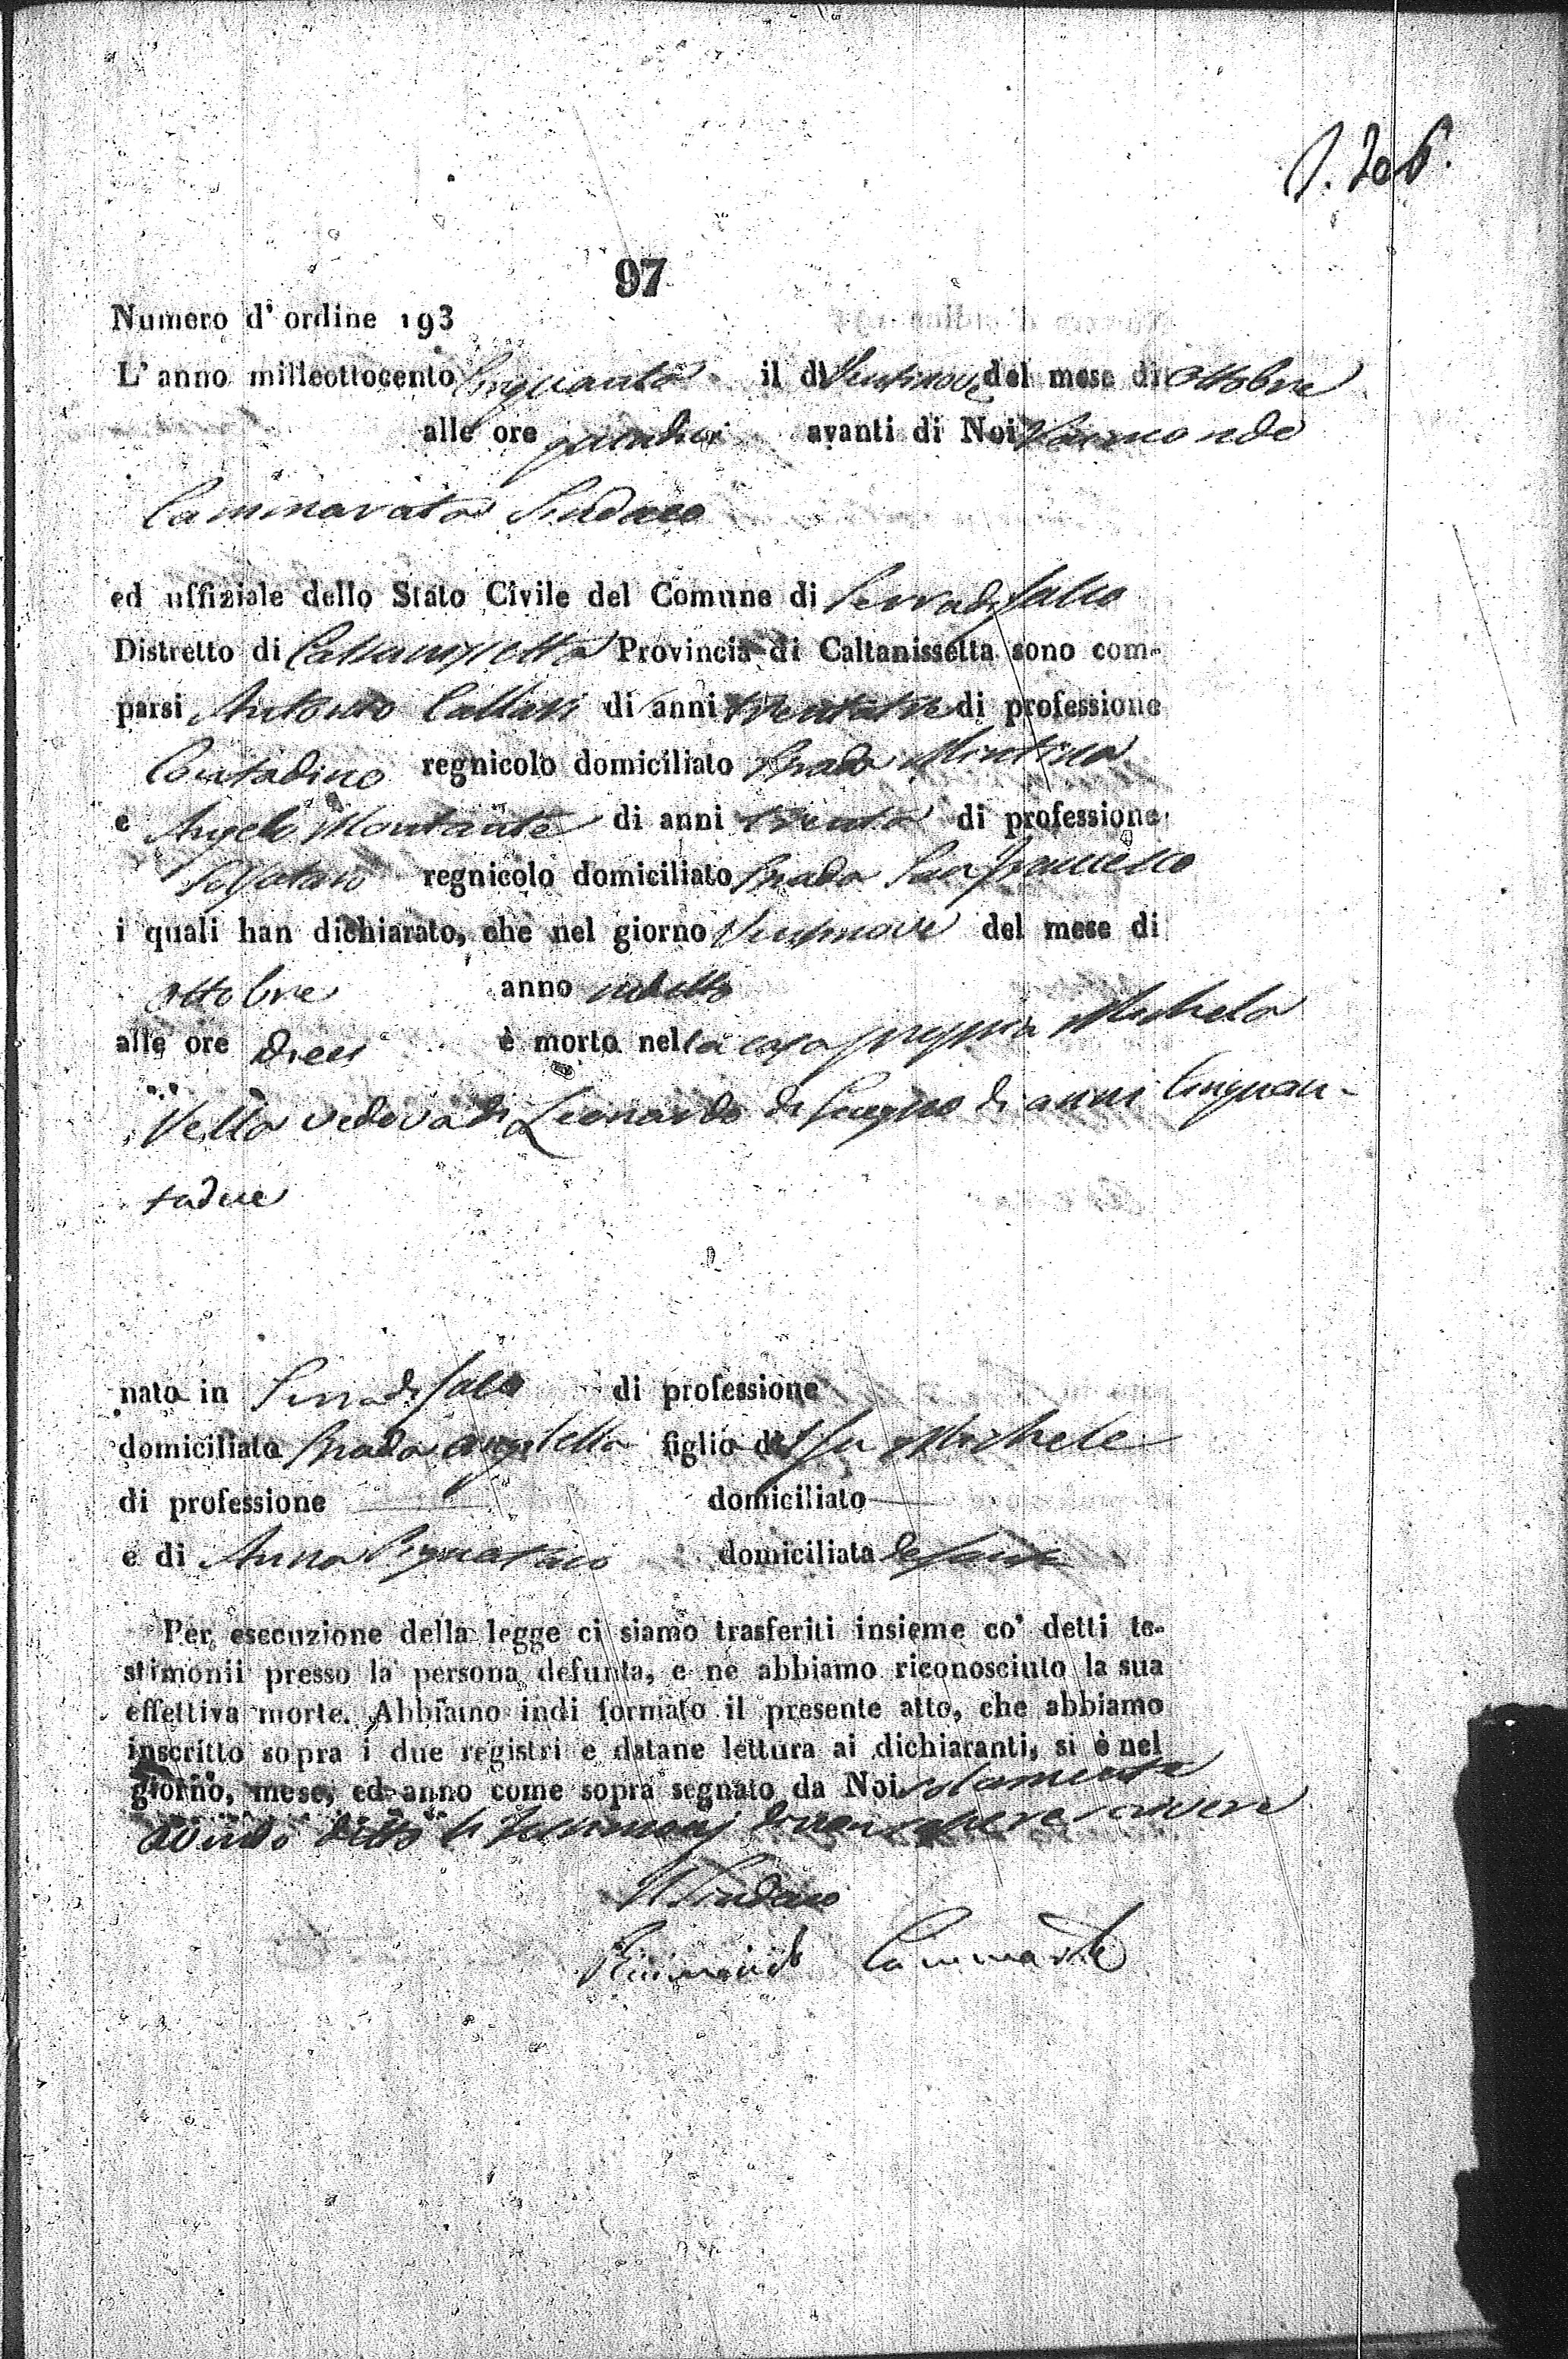 97
Numero d' ordine 193
L' anno milleottocento Cinquanta il dì Ventinove del mese di Ottobre
alle ore quindici avanti di Noi Raimondo
Cammarata Sindaco
ed uffiziale dello Stato Civile del Comune di Serradifalco
Distretto di Caltanissetta Provincia di Caltanissetta sono com-
parsi Antonio Callari di anni trentatre di professione
Contadino regnicolo domiciliato Strada
e Angelo Montante di anni trenta di professione
Solfataro regnicolo domiciliato Strada San Francesco
i quali han dichiarato, che nel giorno Ventinove del mese di
Ottobre anno sudetto
alle ore dieci è morto nella casa propria Michela
Vella vedova di Leonardo di di anni Cinquan-
tadue
nato in Serradifalco di professione
domiciliato Strada figlio del fu Michele
di professione domiciliato
e di Anna domiciliata
Per esecuzione della legge ci siamo trasferiti insieme co' detti te-
stimonii presso la persona defunta, e ne abbiamo riconosciuto la sua
effettiva morte. Abbiamo indi formato il presente atto, che abbiamo
inscritto sopra i due registri e datane lettura ai dichiaranti, si è nel
giorno, mese, ed anno come sopra segnato da Noi solamente
avendo detto li Testimonj di non sapere scrivere
Il Sindaco
Raimondo Cammarata